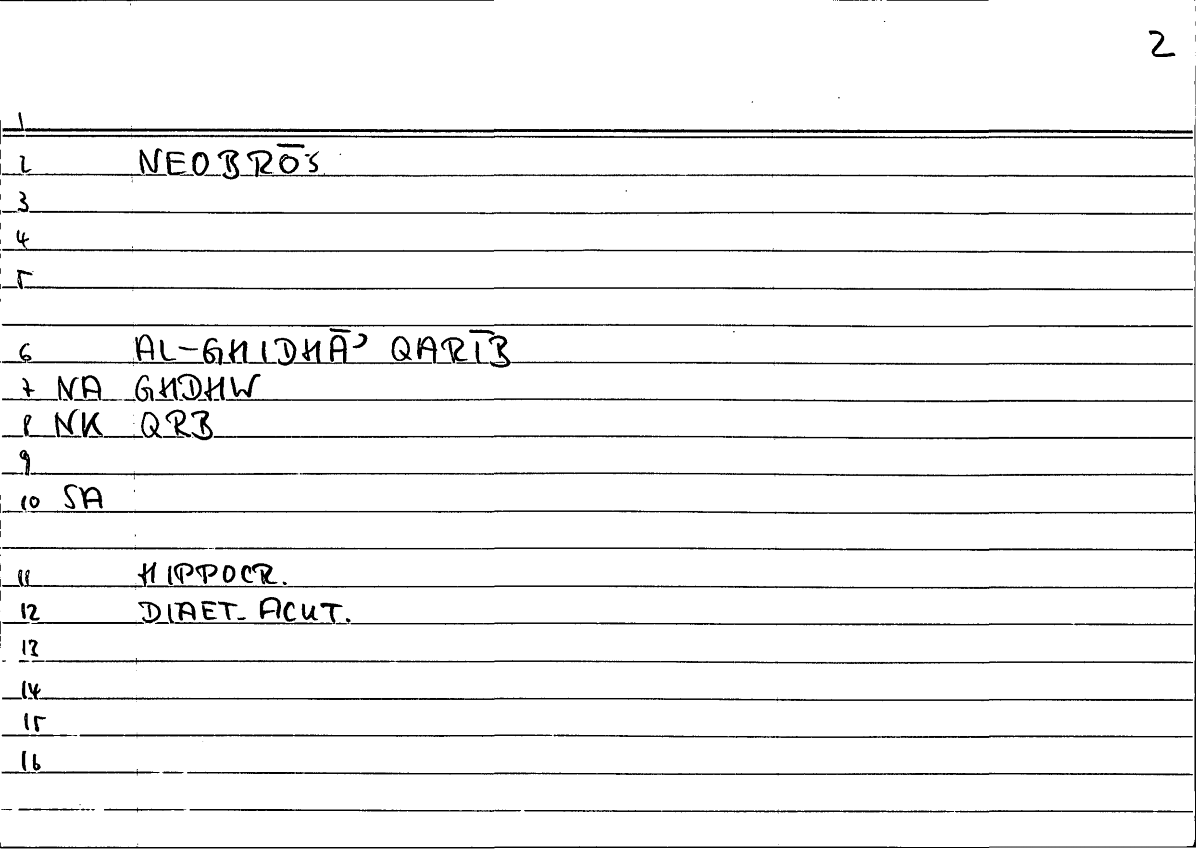 2
1
2 NEOBRŌS
3
4
5
6 AL-GHIDHĀʾ QARĪB
7 NA GHDHW
8 NK QRB
9
10 SA
11 HIPPOCR.
12 DIAET. ACUT.
13
14
15
16